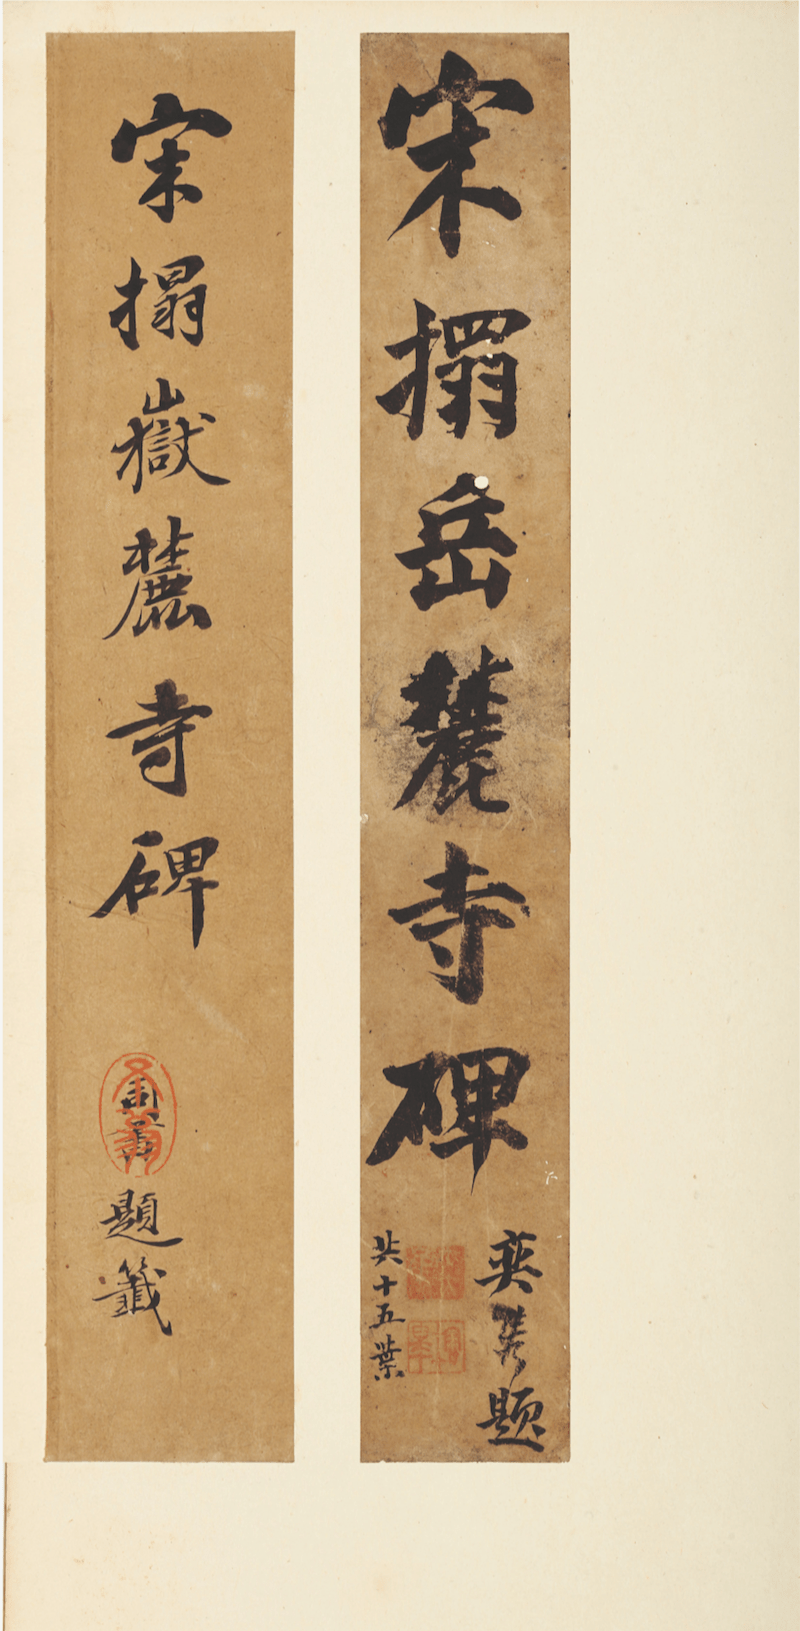 宋搨岳麓寺碑
奕 題
共十五葉
宋搨嶽麓寺碑
題籤